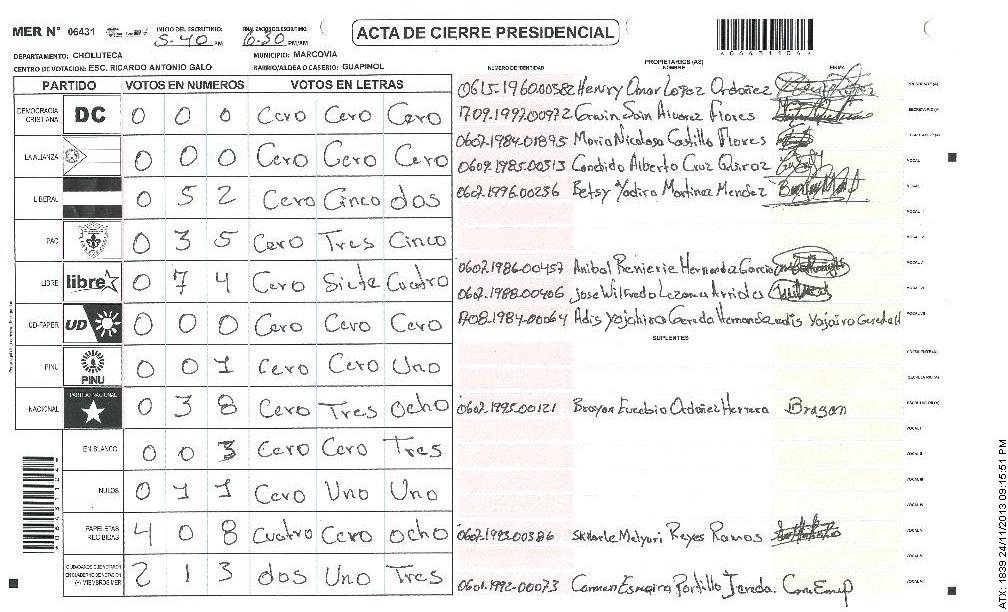 MER Nº 06431
INICIO DEL ESCRUTINIO: 5-40 PM
FINALIZACION DEL ESCRUTINIO: 6:30 PM/AM
ACTA DE CIERRE PRESIDENCIAL
DEPARTAMENTO: CHOLUTECA
MUNICIPIO: MARCOVIA
CENTRO DE VOTACION: ESC. RICARDO ANTONIO GALO
BARRIO/ALDEA O CASERIO: GUAPINOL
PARTIDO VOTOS EN NUMEROS VOTOS EN LETRAS
DEMOCRACIA CRISTIANA DC 0 0 0 Cero Cero Cero
LA ALIANZA 0 0 0 Cero Cero Cero
LIBERAL 0 5 2 Cero Cinco dos
PAC 0 3 5 Cero Tres Cinco
LIBRE libre 0 7 4 Cero Siete Cuatro
UD-FAPER UD 0 0 0 Cero Cero Cero
PINU PINU 0 0 1 Cero Cero Uno
NACIONAL PARTIDO NACIONAL 0 3 8 Cero Tres Ocho
EN BLANCO 0 0 3 Cero Cero Tres
NULOS 0 1 1 Cero Uno Uno
PAPELETAS RECIBIDAS 4 0 8 Cuatro Cero ocho
CIUDADANOS QUE VOTARON EN CUADERNO DE VOTACION (+) MIEMBROS MER 2 1 3 dos Uno Tres
PROPIETARIOS (AS)
NUMERO DE IDENTIDAD NOMBRE FIRMA
0615.1960.00582 Henry Omar Lopez Ordoñez
1709.1992.00972 Erwin Join Alvarez Flores
0602.1984-01895 Maria Nicolasa Castillo Flores
0609.1985.00313 Candido Alberto Cruz Quiroz
0607.1996.00236 Betsy Yadira Martinez Mendez
0607.1986-00457 Anibal Renierie Hernandez Garcia
0607.1988-00406 Jose Wilfredo Lezama Arrioles
1708.1984-00064 Adis Yojahira Gereda Hernandez adis Yajaira Gereda H
SUPLENTES
0602.1995.00121 Brayan Eucebio Ordoñez Herrera Brayan
0607.1993-00386 Skharle Melyuri Reyes Ramos
0601.1992-00073 Carmen Esmeira Portillo
PRESIDENTE (A)
SECRETARIO (A)
ESCRUTADOR (A)
VOCAL I
VOCAL II
VOCAL III
VOCAL IV
VOCAL V
VOCAL VI
VOCAL VII
24/11/2013 09:15:51 PM